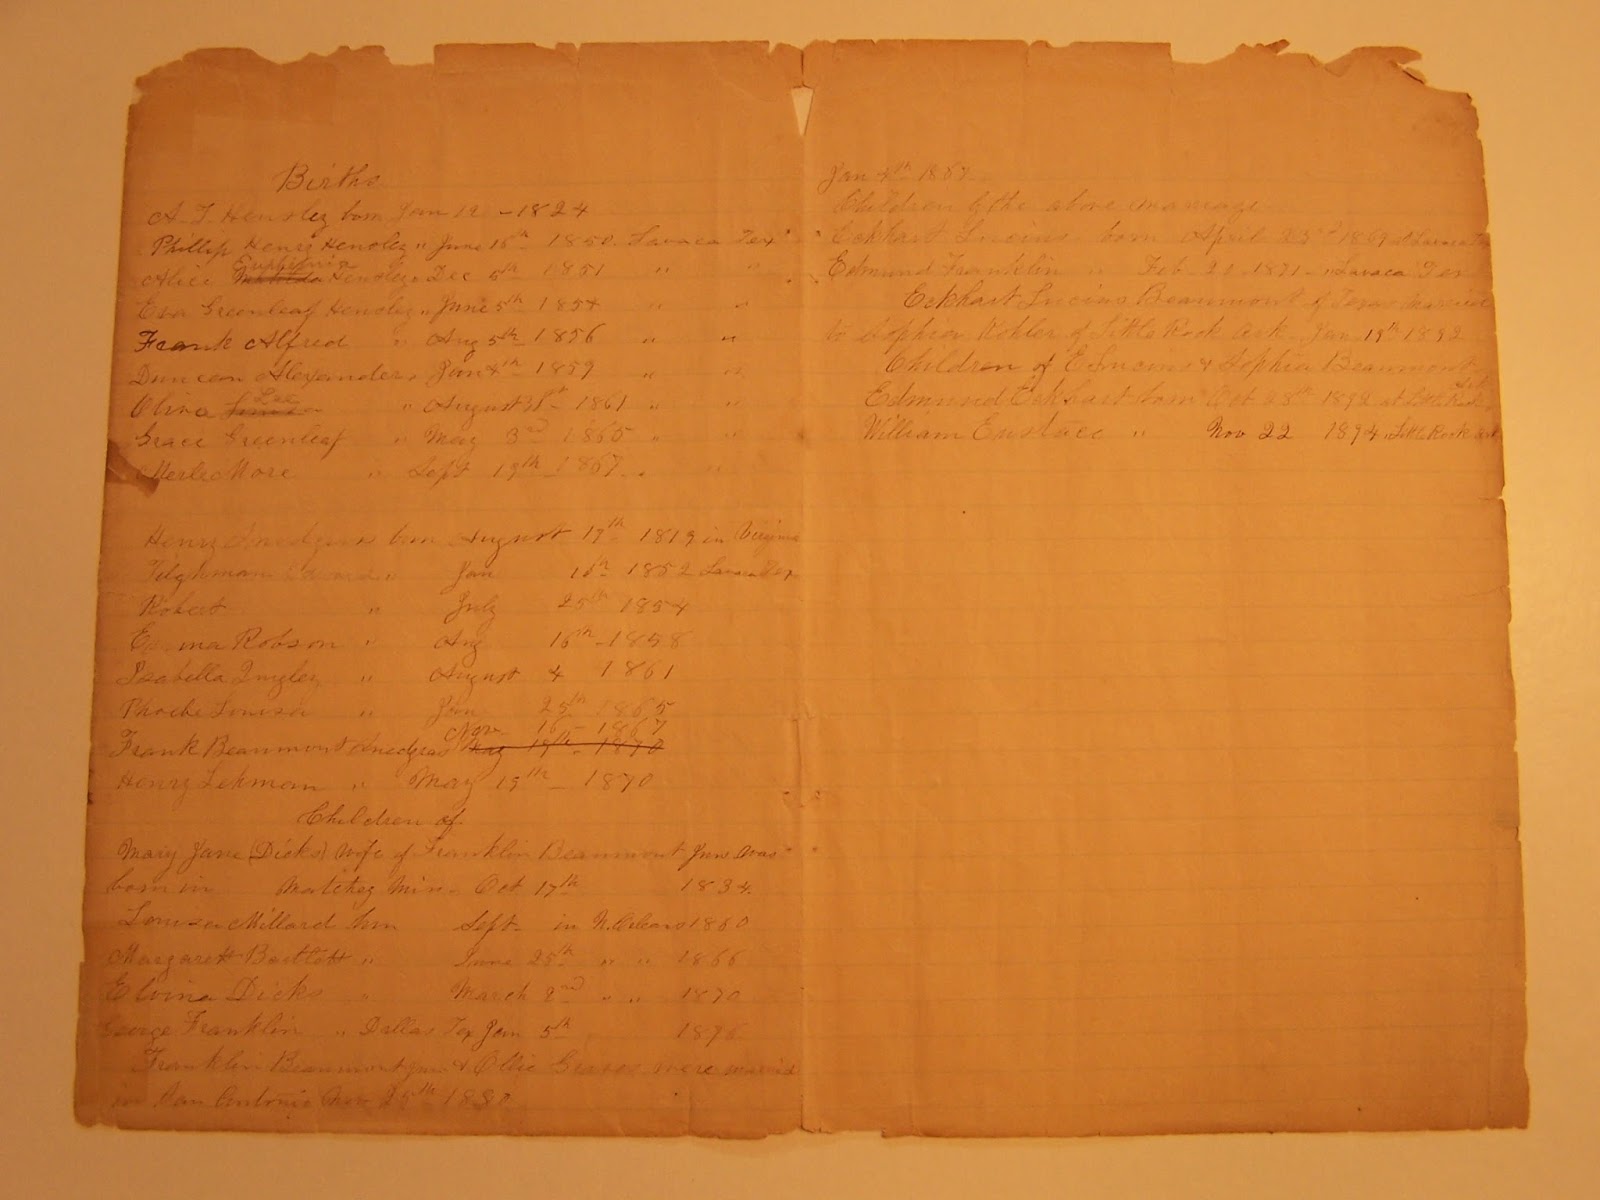 Births
A. T. Hensley born Jan 12 - 1824
Phillip Henry Hensley " June 16th 1850. Lavaca Tex
Euphemia
Alice Hensley " Dec 5th 1851 " "
Eva Greenleaf Hensley " June 5th 1854 " "
Frank Alfred " Aug 5th 1856 " "
Duncan Alexander " Jan 4th 1859 " "
Lee
Olivia " August 31st 1861 " "
Grace Greenleaf " May 3rd 1865 " "
Merle More " Sept 19th 1867 " "
Henry Snedgras born August 17th 1819 in Virginia
Tilghman " Jan 1852 Lavaca Tex
Robert " July 25th 1854
Emma Robson " Aug 16th - 1858
Isabella Quigley " August 4 1861
Phoebe Louisa " Jan 25th 1865
Nov 16 - 1867
Frank Beaumont Snedgras May 19th - 1870
Henry Lehman " May 19th - 1870
Children of
Mary Jane (Dicks) Wife of Franklin Beaumont Junr was
born in Natchez Miss - Oct 17th 1834.
Louisa Millard born Sept in N. Orleans 1860
Margarett Bartlett " June 25th " " 1866
Elvina Dicks " March 2nd " " 1870
George Franklin " Dallas Tex Jan 5th 1876
Franklin Beaumont Junr & Ollie Graves were married
in San Antonio Nov 25th 1880
Jan 4th 1867
Children by the above marriage
Eckhart Lucius born April 23rd 1869 at Lavaca Tex
Edmund Franklin " Feb 1871 - " Lavaca Tex
Eckhart Lucius Beaumont of Texas married
to Sophia Kohler of Little Rock Ark. Jan 19th 1892
Children of E Lucius & Sophia Beaumont
Edmund Eckhart born Oct 28th 1892 at Little Rock
William Eustace " Nov 22 1894 " Little Rock Ark